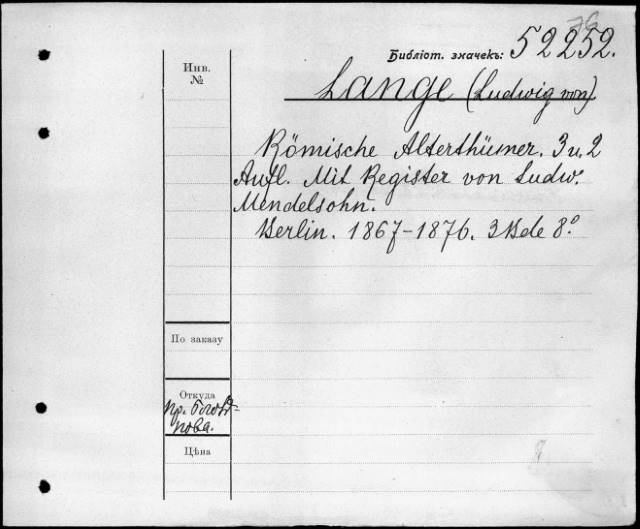 76
Библіот. значекъ: 52252.
Инв.
№
Lange (Ludwig von)
Römische Alterthümer. 3 u. 2
Aufl. Mit Register von Ludw.
Mendelsohn.
Berlin. 1867-1876. 3 Bde 8º
По заказу
Откуда
пр.
Цѣна